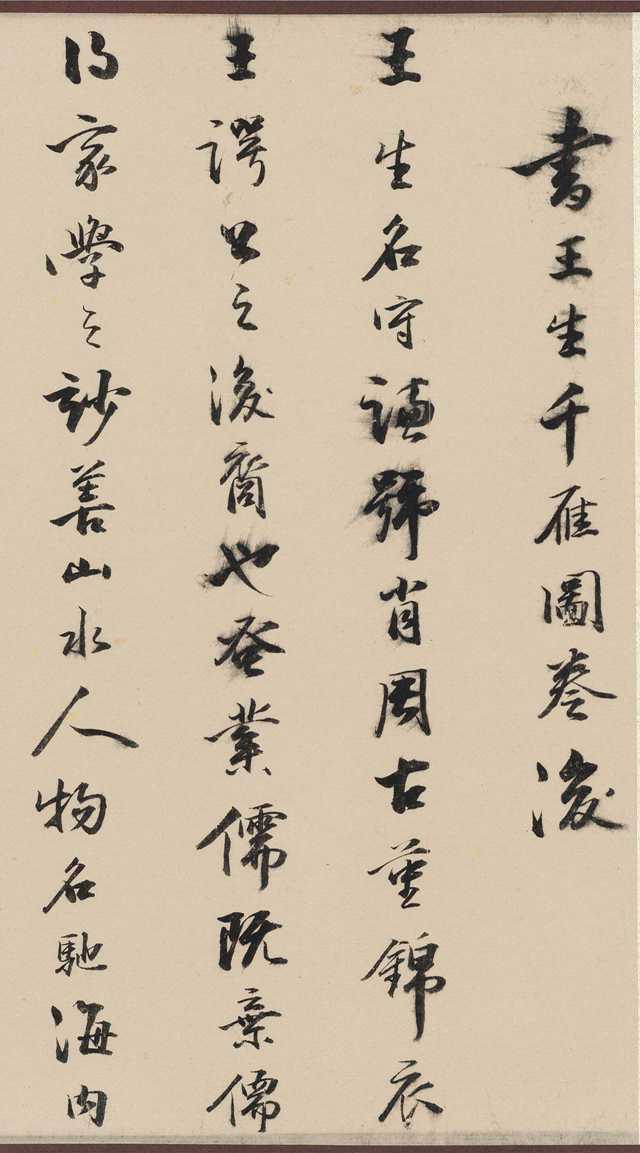 書王生千雁圖卷後
王生名守謙號肖周古堇錦衣
王諤公之後裔也蚤業儒既棄儒
得家學之玅善山水人物名馳海內